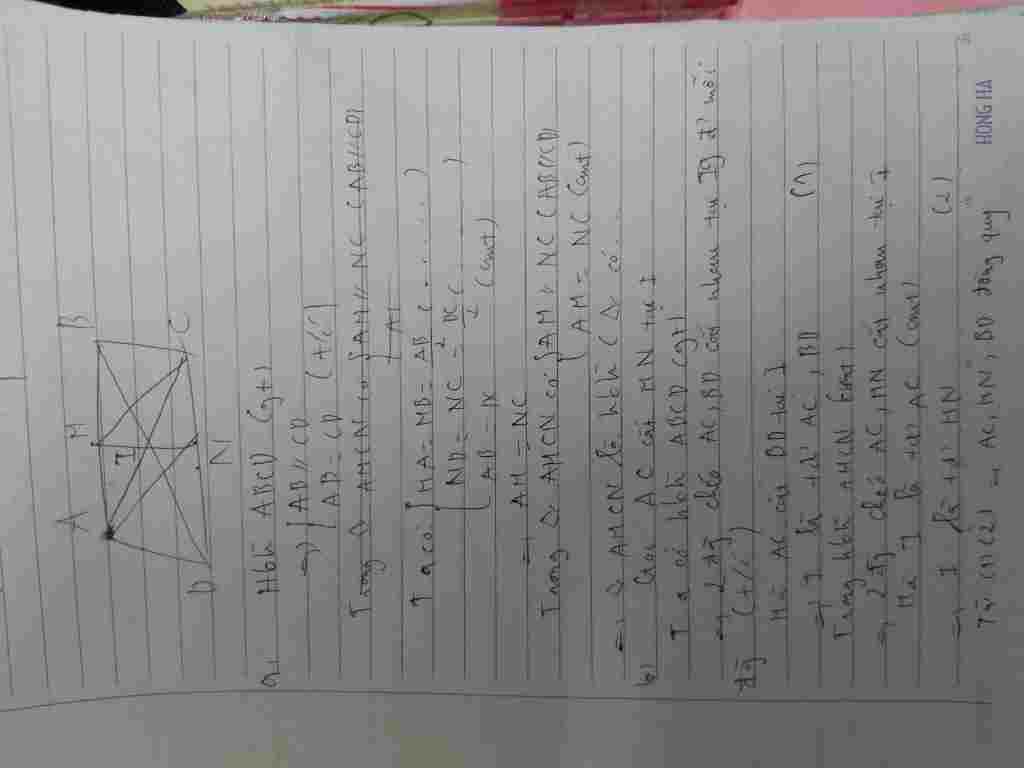 A M B
I
D N C
a, Hbh ABCD (gt)
=> { AB // CD
AB = CD (t/c)
Trong ◇ AMCN có { AM // NC (AB//CD)
AM
Ta có { MA = MB = AB/2 (.....)
ND = NC = DC/2 ( )
AB = DC (cmt)
=> AM = NC
Trong ◇ AMCN có { AM // NC (AB//CD)
AM = NC (cmt)
=> ◇ AMCN là hbh (◇ có.
b) Gọi AC cắt MN tại I
Ta có hbh ABCD (gt)
=> 2 đg chéo AC, BD cắt nhau tại Tg đ' mỗi
đg (t/c)
Mà AC cắt BD tại I
=> I là tđ' AC, BD (1)
Trong Hbh AMCN (cmt)
=> 2 đg chéo AC, MN cắt nhau tại I
Mà I là tđ' AC (cmt)
=> I là tđ' MN (2)
Từ (1) (2) => AC, MN, BD đồng quy
HONG HA